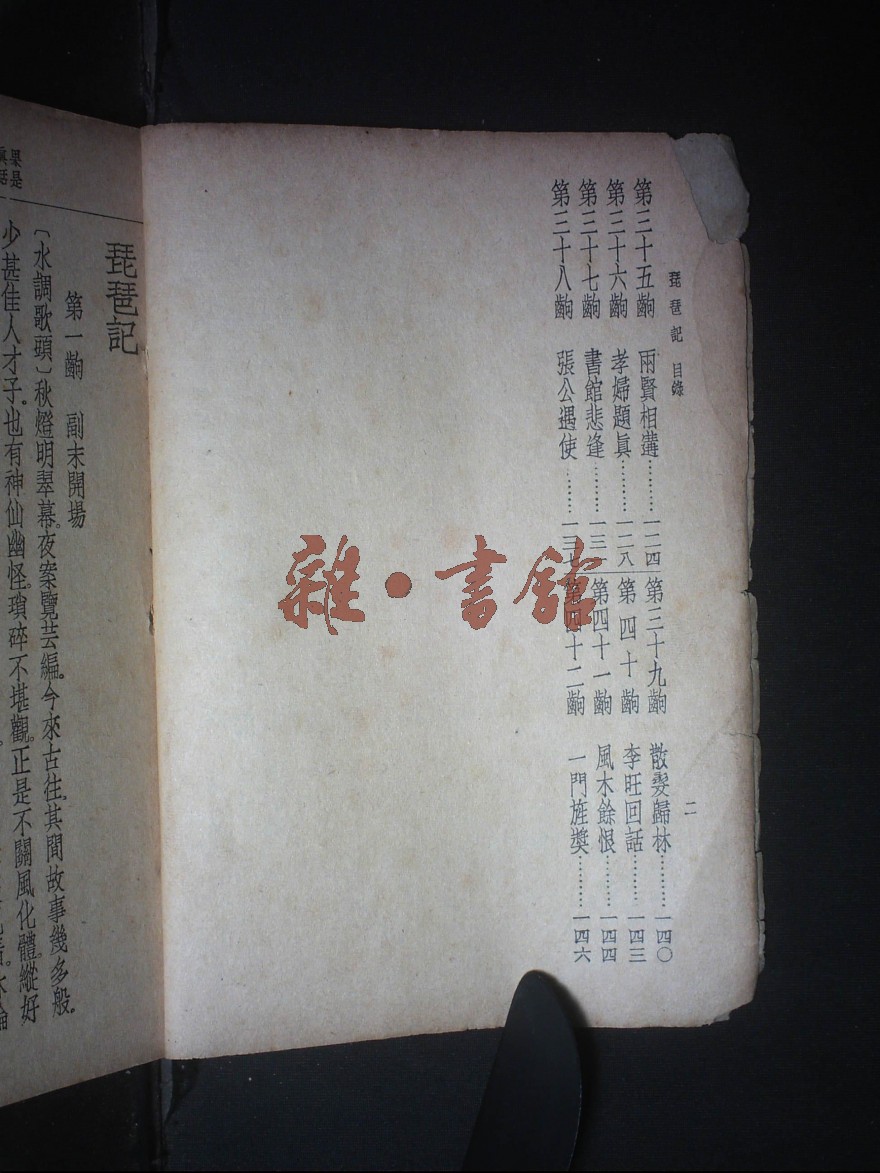 琵琶記 目錄 二
第三十五齣 兩賢相遘…………一二四
第三十六齣 孝婦題眞…………一二八
第三十七齣 書館悲逢…………一三
第三十八齣 張公遇使…………一三七
第三十九齣 散髮歸林…………一四〇
第四十齣 李旺回話…………一四三
第四十一齣 風木餘恨…………一四四
第四十二齣 一門旌獎…………一四六
雜·書館
果是
琵琶記
第一齣 副末開場
〔水調歌頭〕秋燈明翠幕。夜案覽芸編。今來古往。其間故事幾多般。
少甚佳人才子。也有神仙幽怪。瑣碎不堪觀。正是不關風化體。縱好